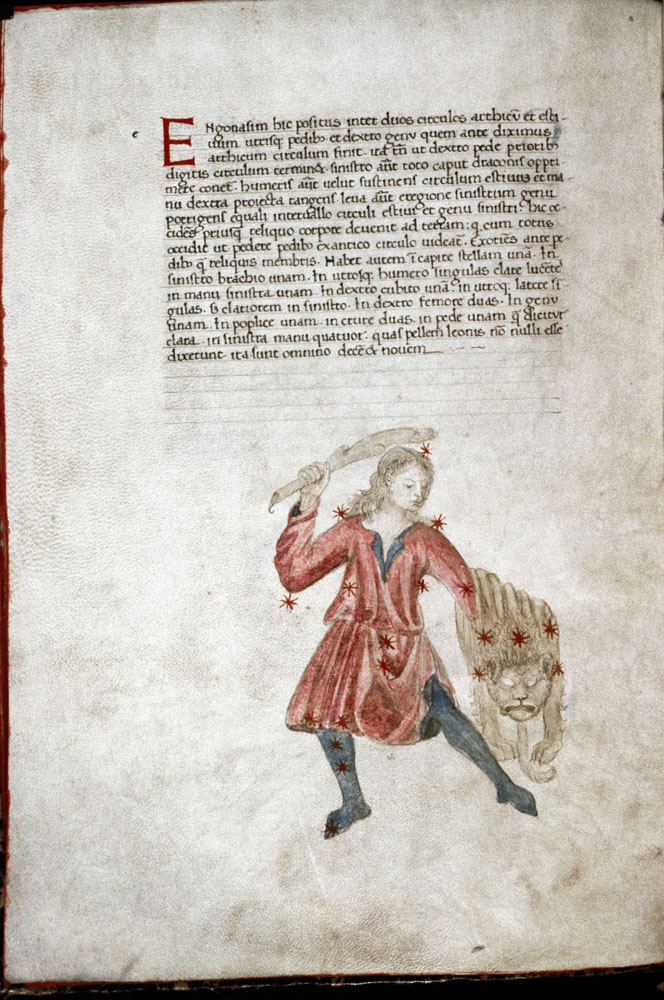 e
ENgonasim hic positus inter duos circulos arthicũ et esti-
uum utrisq; pedibꝰ et dextro genu quem ante diximus
arthicum circulum finit. ita tñ ut dextro pede prioribꝰ
digitis circulum terminet. sinistro aũt toto caput draconis oppri
mere conet̃. humeris aũt uelut sustinens circulum estiuus et ma
nu dextra proiecta tangens leua aũt eregione sinistrum genu
porrigens equali interuallo circuli estiui et genu sinistri. hic oc
cidẽs prius q̃ reliquo corpore deuenit ad terram: q. cum totus
occidit ut pedere pedibꝰ exantico circulo uideat̃. Exoriẽs ante pe
dibꝰ q̃ reliquis membris. Habet autem ĩ capite stellam unã. In
sinistro brachio unam. In utrosq; humero singulas clare lucẽte
in manu sinistra unam. In dextro cubito unã. in utroq; latere si
gulas. s; clariorem in sinistro. In dextro femore duas. In genu
unam. In poplice unam. in crure duas. in pede unam q̃ dicitur
clara. in sinistra manu quatuor. quas pellem leonis nõ nulli esse
dixerunt. ita sunt omnino decẽ & nouem